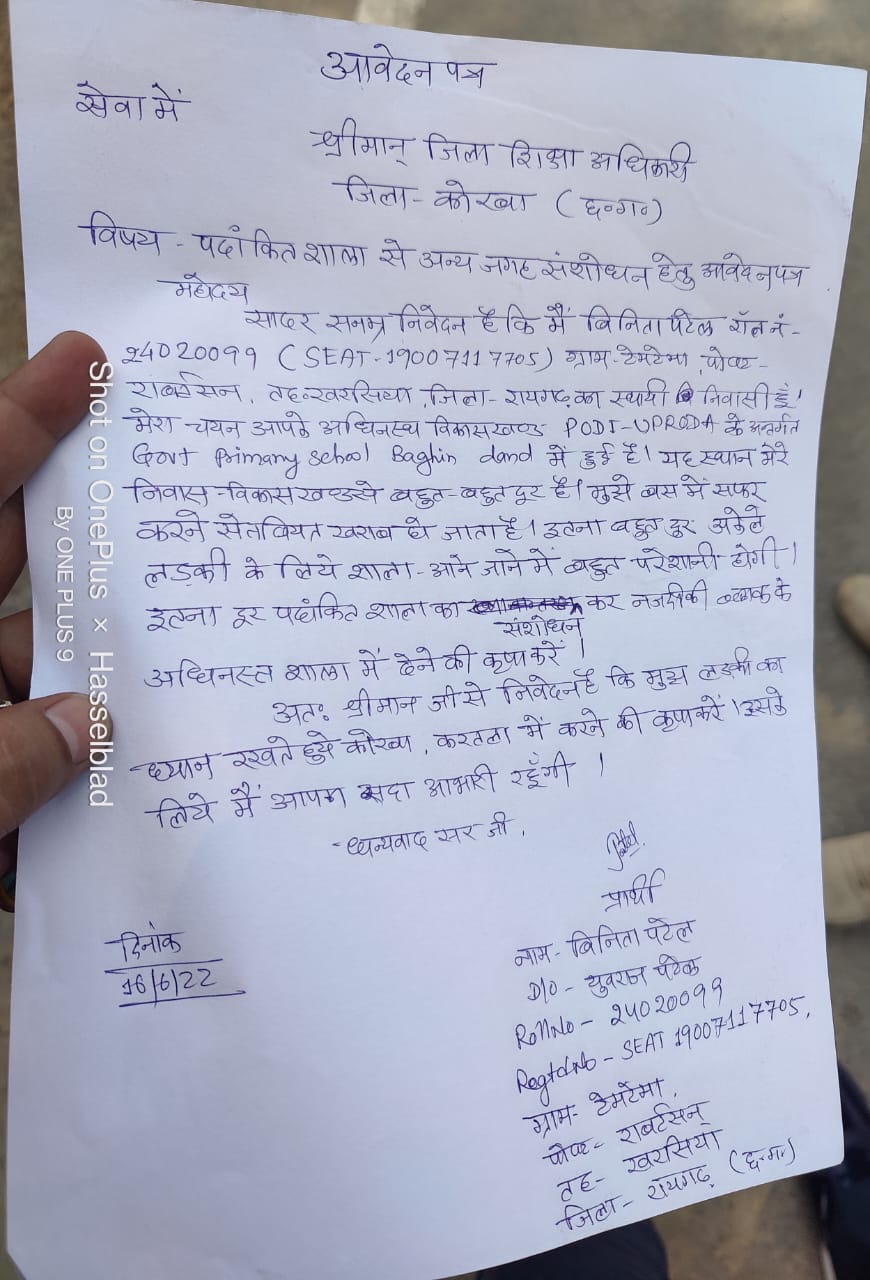 आवेदन पत्र
सेवा में
श्रीमान् जिला शिक्षा अधिकारी
जिला - कोरबा (छ॰ग॰)
विषय - पदांकित शाला से अन्य जगह संशोधन हेतु आवेदन पत्र
महोदय
सादर सनम्र निवेदन है कि मैं बिनिता पटेल रॉल नं-
24020099 (SEAT-19007117705) ग्राम-टेमटेमा, पोस्ट-
राबर्टसन, तह॰खरसिया, जिला- रायगढ़ का स्थायी निवासी हूँ।
मेरा चयन आपके अधिनस्थ विकासखण्ड PODI-UPRODA के अन्तर्गत
Govt Primary School Baghin dand में हुई है। यह स्थान मेरे
निवास-विकासखण्डसे बहुत-बहुत दूर है। मुझे बस में सफर
करने से तबियत खराब हो जाता है। इतना बहुत दूर अकेले
लड़की के लिये शाला-आने जाने में बहुत परेशानी होगी।
इतना दूर पदांकित शाला का कर नजदीकी ब्लाक के
संशोधन
अधिनस्त शाला में देने की कृपा करें।
अतः श्रीमान जी से निवेदन है कि मुझ लड़की का
ध्यान रखते हुये कोरबा, करतला में करने की कृपा करें। इसके
लिये मैं आपका सदा आभारी रहूँगी।
धन्यवाद सर जी,
Patel.
प्रार्थी
नाम- बिनिता पटेल
D/O - युवराज पटेल
Roll No - 24020099
Regtd No - SEAT 19007117705,
ग्राम- टेमटेमा,
पोस्ट- राबर्टसन्
तह- खरसिया
जिला- रायगढ़ (छ.ग.)
दिनांक
16/6/22
Shot on OnePlus × Hasselblad
By ONE PLUS 9